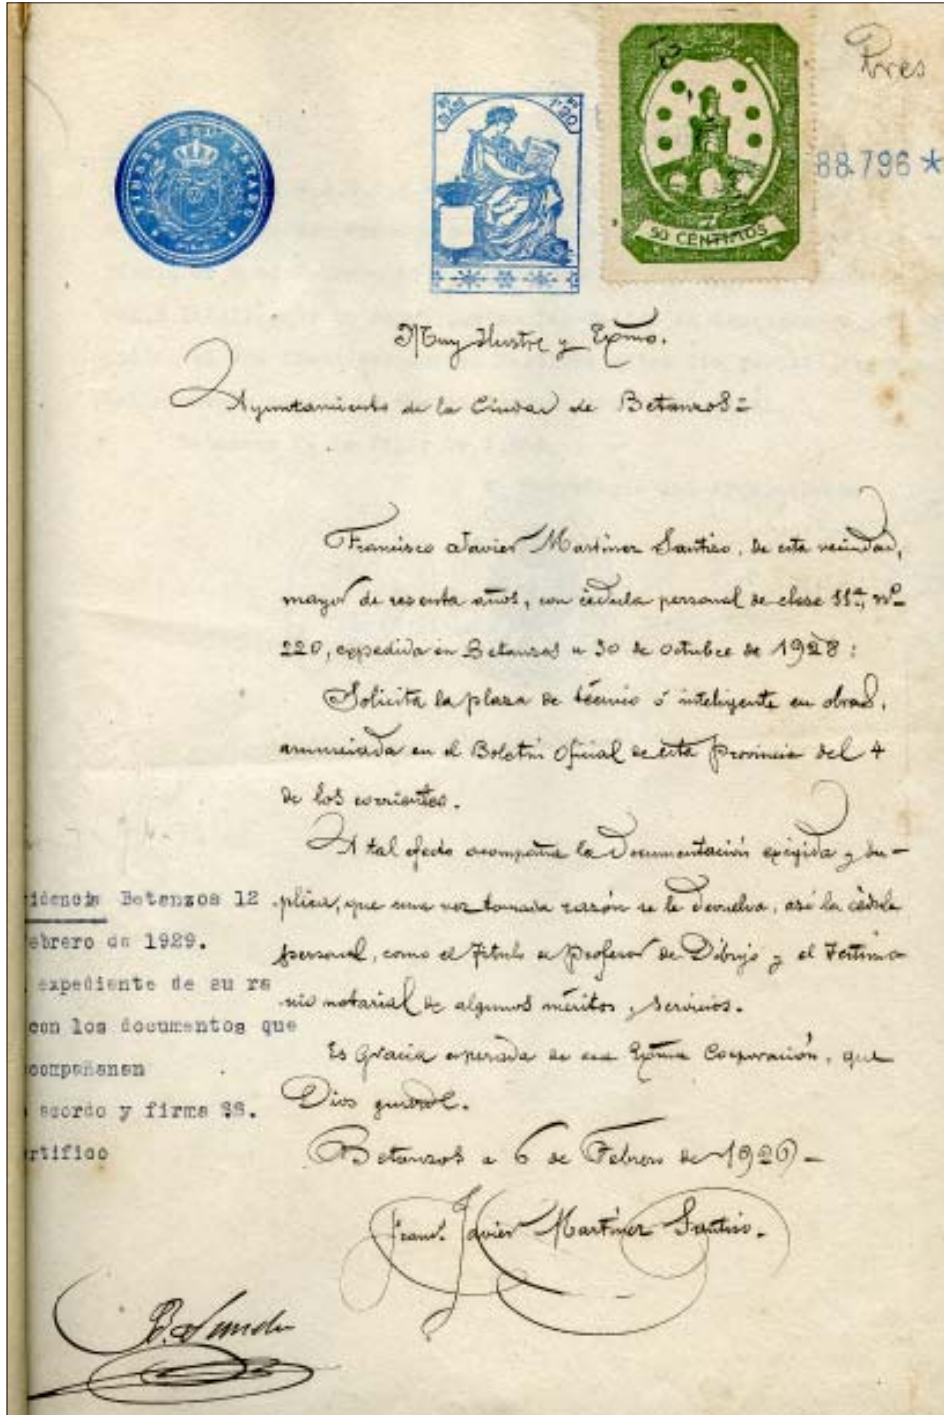 Pres
TIMBRE DEL ESTADO
1'20
50 CENTIMOS
88.796 *
Muy Ilustre y Exmo.
Ayuntamiento de la Ciudad de Betanzos=
Francisco Javier Martínez Santiso, de esta vecindad,
mayor de sesenta años, con cédula personal de clase 11ª, nº
220, expedida en Betanzos a 30 de octubre de 1928:
Solicita la plaza de técnico ó inteligente en obras,
anunciada en el Boletín Oficial de esta Provincia del 4
de los corrientes.
A tal efecto acompaña la documentación exigida y su-
plica, que una vez tomada razón se le devuelva, así la cédula
personal, como el Título de Profesor de Dibujo y el Testimo-
nio notarial de algunos méritos y servicios.
Es Gracia esperada de esa Exma Corporación, que
Dios guarde.
Betanzos a 6 de Febrero de 1929-
Franc. Javier Martínez Santiso.
idencia Betanzos 12
ebrero de 1929.
expediente de su ra
con los documentos que
compañanan
acordo y firma SS.
rtifico